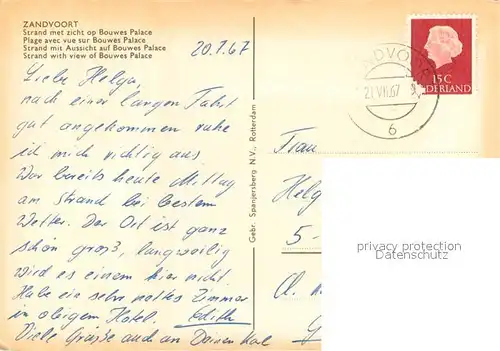 ZANDVOORT
Strand met zicht op Bouwes Palace
Plage avec vue sur Bouwes Palace
Strand mit Aussicht auf Bouwes Palace
Strand with view of Bouwes Palace
20.7.67
Liebe Helga,
nach einer langen Fahrt
gut angekommen ruhe
ich mich richtig aus
War bereits heute Mittag
am Strand bei bestem
Wetter. Der Ort ist ganz
schön groß, langweilig
wird es einem hier nicht.
Habe ein sehr nettes Zimmer
in obigem Hotel. Edith
Viele Grüße auch an Deinen
Gebr. Spanjersberg N.V., Rotterdam
15 C
NEDERLAND
21.VII.67
6
Frau
Helg
5-
privacy protection
Datenschutz